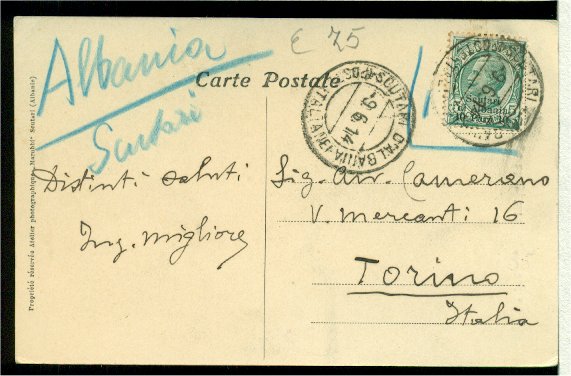 Albania
Scutari
£ 75
Carte Postale
SCUTARI D'ALBANIA
9.6.14
Distinti saluti
Ing. Migliore
Sig. Avv. Camerano
V. Mercanti 16
Torino
Italia
Propriété réservée Atelier photographique "Marubbi" Scutari (Albanie)